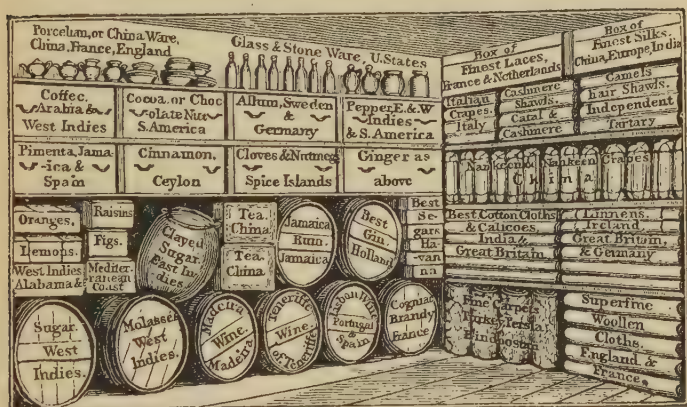 Porcelian, or China Ware,
China, France, England
Glass & Stone Ware, U. States
Coffee,
Arabia &
West Indies
Cocoa, or Choc
olate Nut
S. America
Allum, Sweden
&
Germany
Pepper, E. & W
Indies
& S. America
Pimenta, Jama-
ica &
Spain
Cinnamon,
Ceylon
Cloves & Nutmegs
Spice Islands
Ginger as
above
Oranges,
Lemons,
West Indies
Alabama &
Raisins
Figs.
Mediter-
ranean
Coast
Clayed
Sugar.
East In-
dies.
Tea.
China.
Tea.
China.
Jamaica
Rum.
Jamaica
Best
Gin.
Holland
Best
Se-
gars
Ha-
van-
na
Sugar.
West
Indies.
Molasses
West
Indies.
Madeira
Wine.
Madeira
Teneriffe
Wine.
of Teneriffe
Lisbon Wine
Portugal
&
Spain
Cogniac
Brandy
France
Box of
Finest Laces,
France & Netherlands
Box of
Finest Silks.
China, Europe, India
Italian
Crapes.
Italy
Cashmere
Shawls.
&
Cashmere
Camels
hair Shawls.
Independent
Tartary
Nankeen Crapes
China
Best Cotton Cloths
& Calicoes,
India &
Great Britain
Linnens.
Ireland
Great Britain,
& Germany
Fine Carpets
Turkey Persia.
Hindoostn
Superfine
Woollen
Cloths.
England &
France.